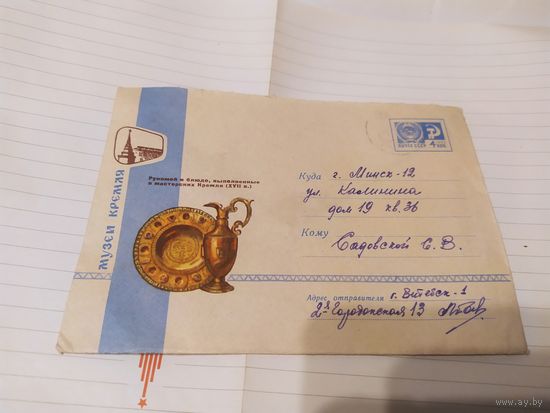 МУЗЕИ КРЕМЛЯ
Рукомой и блюдо, выполненные
в мастерских Кремля (XVII в.)
ПОЧТА СССР 4 КОП
Куда г. Минск-12
ул. Калинина
дом 19 кв. 36
Кому
Садовской С. В.
Адрес отправителя г. Витебск-1
2я Городокская 13
www.ay.by